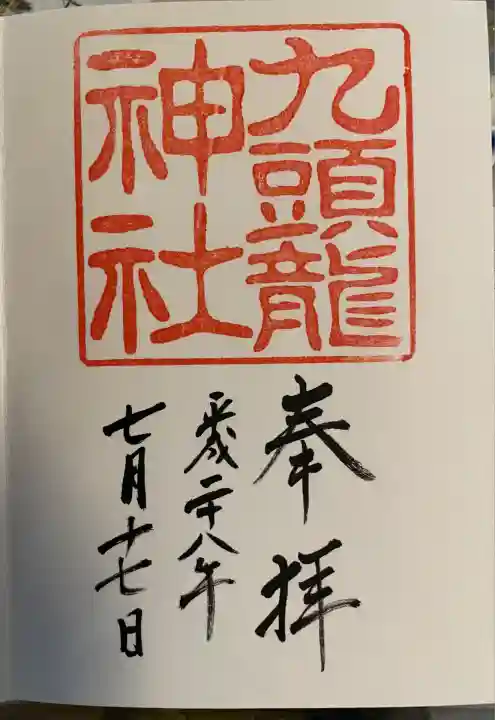 九頭龍
神社
奉拝
平成二十八年
七月十七日